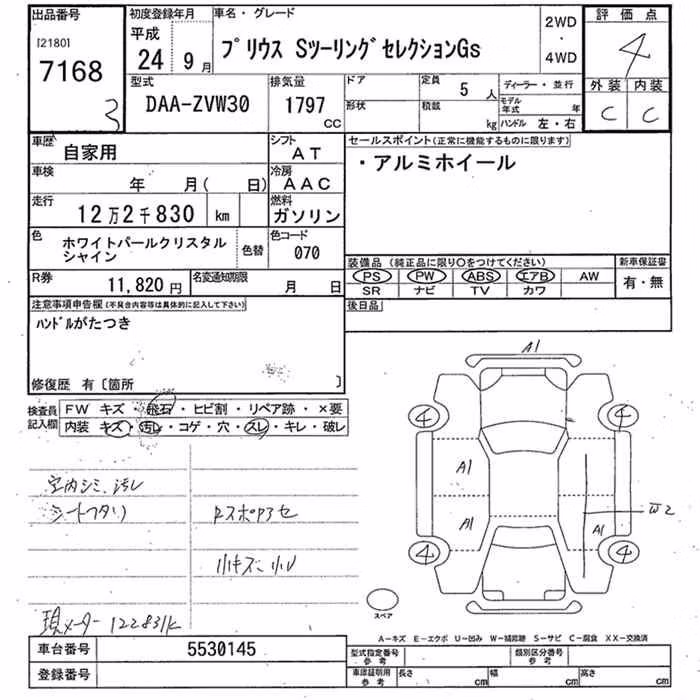 出品番号 初度登録年月 車名・グレード 2WD ・ 4WD 評価点
[2180] 平成
7168 24 年 9 月 プリウス SツーリングセレクションGs 4
3 外装 内装
型式 排気量 ドア 定員 5 人 ディーラー・並行 C C
DAA-ZVW30 1797 CC 形状 積載 kg モデル年式 年
ハンドル 左・右
車歴 自家用 シフト AT セールスポイント(正常に機能するものに限ります)
・アルミホイール
車検 年 月( 日) 冷房 AAC
走行 12万2千830 km 燃料 ガソリン
色 ホワイトパールクリスタルシャイン 色替 色コード 070
装備品 (純正品に限り○をつけてください) 新車保証書
PS PW ABS エアB AW 有・無
SR ナビ TV カワ
R券 11,820 円 名変通知期限 月 日
後日品
注意事項申告欄(不具合内容等は具体的に記入して下さい)
ハンドルがたつき
修復歴 有〔箇所 〕
検査員記入欄 FW キズ・飛石・ヒビ割・リペア跡・×要
内装 キズ・汚レ・コゲ・穴・スレ・キレ・破レ
室内シミ、汚レ
シートヘタリ
小キズ 小凹
現メーター 122831k
A1
4 4
A1
A1 A1 W2
4 4
スペア
A-キズ E-エクボ U-凹み W-補修跡 S-サビ C-腐食 XX-交換済
車台番号 5530145
登録番号
型式指定番号 参考 類別区分番号 参考
車庫証明用 参考 長さ cm 幅 cm 高さ cm